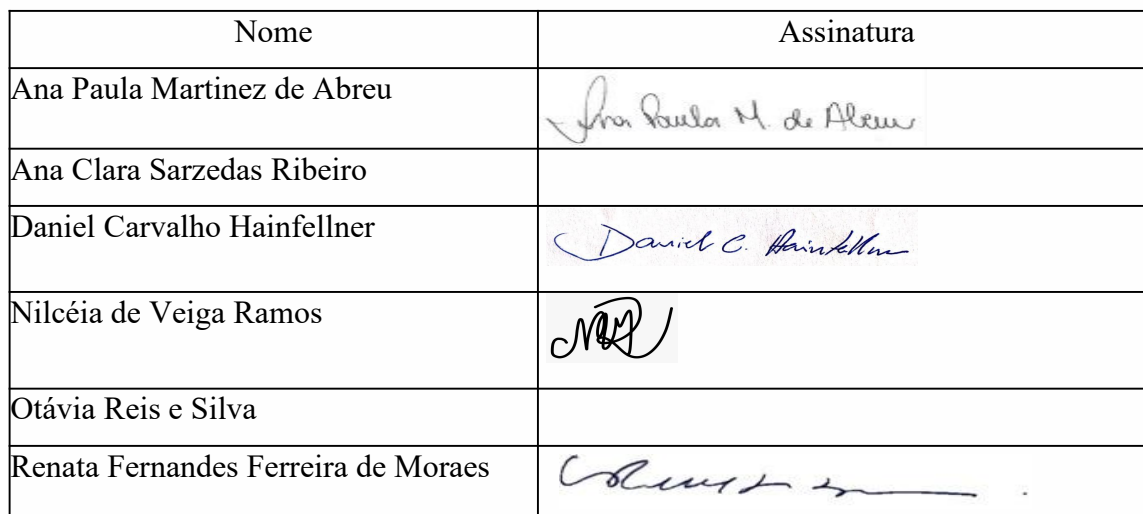 Nome Assinatura
Ana Paula Martinez de Abreu Ana Paula M. de Abreu
Ana Clara Sarzedas Ribeiro
Daniel Carvalho Hainfellner Daniel C. Hainfellner
Nilcéia de Veiga Ramos
Otávia Reis e Silva
Renata Fernandes Ferreira de Moraes